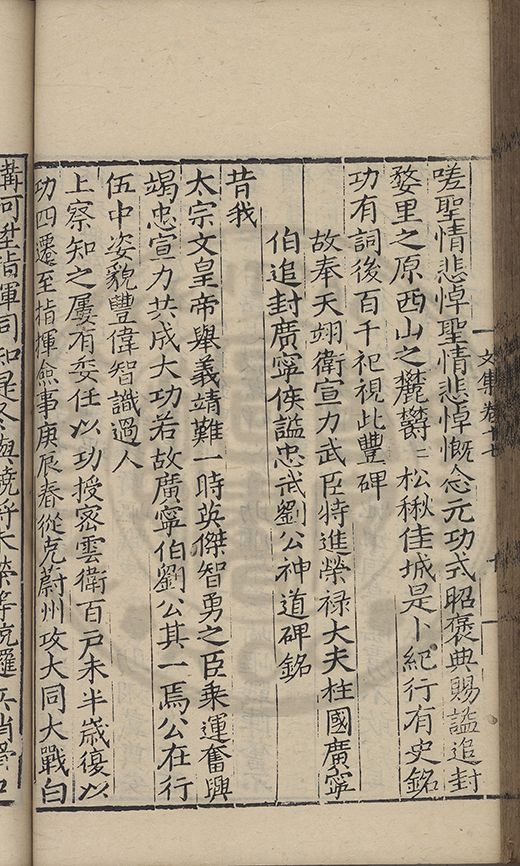 嗟聖情悲悼聖情悲悼慨念元功式昭褒典賜謚追封
婺里之原西山之麓欝〻松楸佳城是卜紀行有史銘
功有詞後百千祀視此豐碑
故奉天翊衛宣力武臣特進榮禄大夫柱國廣寧
伯追封廣寧侯謚忠武劉公神道碑銘
昔我
太宗文皇帝舉義靖難一時英傑智勇之臣乗運奮興
竭忠宣力共成大功若故廣寧伯劉公其一焉公在行
伍中姿貌豐偉智識過人
上察知之屢有委任以功授密雲衛百戸未半歳復以
功四遷至指揮僉事庚辰春從克蔚州攻大同大戰白
溝河陞指揮同知是冬與
文集卷十七